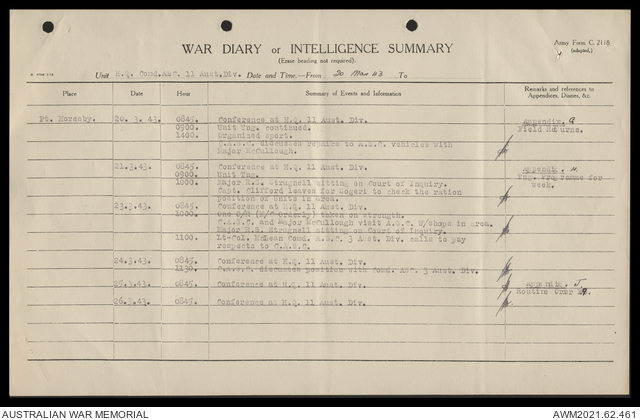 Army Form C. 2118
(adapted.)
WAR DIARY or INTELLIGENCE SUMMARY
(Erase heading not required).
Unit H.Q. Comd.AASC. 11 Aust.Div. Date and Time.—From 20 Mar 43 To
Place Date Hour Summary of Events and Information Remarks and references to Appendices, Diaries, &c.
Pt. Moresby. 20. 3. 43. 0845. Conference at H.Q. 11 Aust. Div. Appendix. G
0900. Unit Tng. continued. Field Returns.
1400. Organized sport.
C.A.S.C. discusses repairs to A.S.C. vehicles with
Major McCullough.
21.3.43. 0845. Conference at H.Q. 11 Aust. Div. Appendix. H.
0900. Unit Tng. Tng. Programme for
1000. Major H.S. Strugnell sitting on Court of Inquiry. week.
Capt. Clifford leaves for Sogeri to check the ration
position of Units in area.
23.3.43. 0845. Conference at H.Q. 11 Aust. Div.
1000. One O/R (M/C Orderly) taken on strength.
C.A.S.C. and Major McCullough visit A.S.C. W/shops in area.
Major H.S. Strugnell sitting on Court of Inquiry.
1100. Lt-Col. McLean Comd. A.S.C. 3 Aust. Div. calls to pay
respects to C.A.S.C.
24.3.43. 0845. Conference at H.Q. 11 Aust. Div.
1130. C.A.S.C. discusses position with Comd. AASC. 3 Aust. Div.
25.3.43. 0845. Conference at H.Q. 11 Aust. Div. Appendix. J.
Routine Order
26.3.43. 0845. Conference at H.Q. 11 Aust. Div.
AUSTRALIAN WAR MEMORIAL AWM2021.62.461